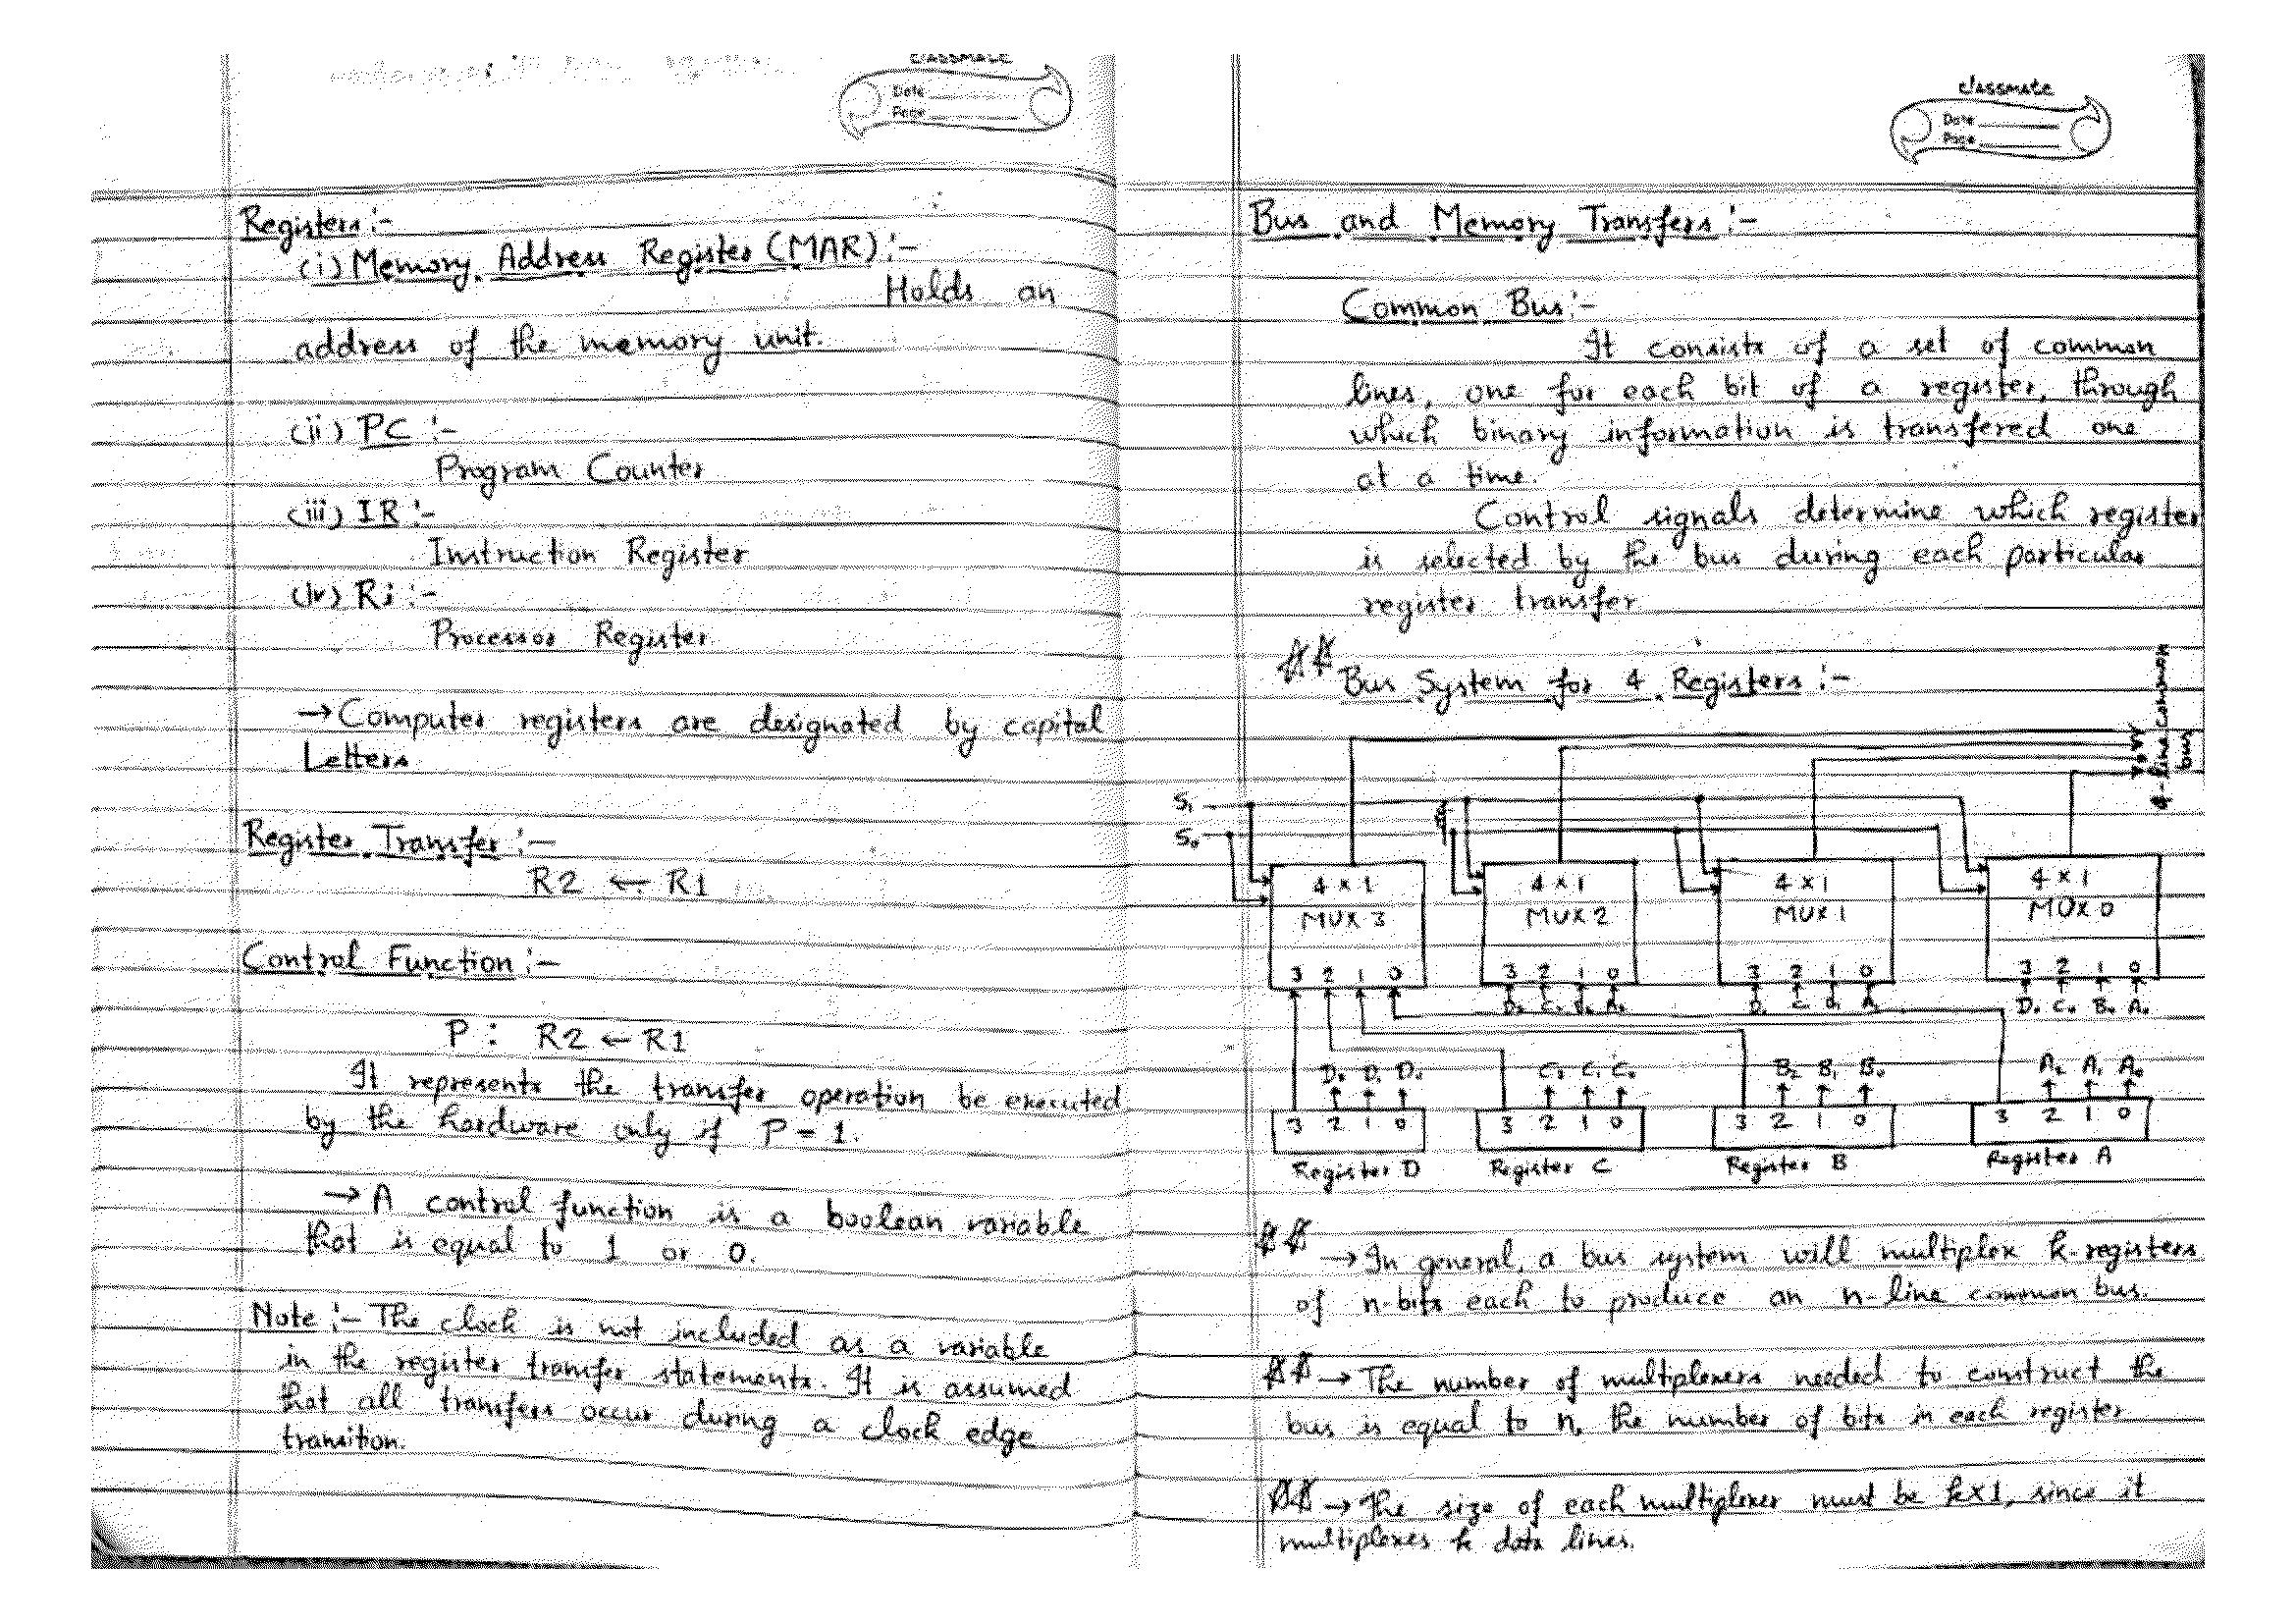 classmate
Date
Page
Registers :-
(i) Memory Address Register (MAR) :-
Holds an
address of the memory unit.
(ii) PC :-
Program Counter
(iii) IR :-
Instruction Register
(iv) Ri :-
Processor Register
→ Computer registers are designated by capital
Letters
Register Transfer :-
R2 ← R1
Control Function :-
P : R2 ← R1
It represents the transfer operation be executed
by the hardware only if P = 1.
→ A control function is a boolean variable
that is equal to 1 or 0.
Note :- The clock is not included as a variable
in the register transfer statements. It is assumed
that all transfers occur during a clock edge
transition.
classmate
Date
Page
Bus and Memory Transfers :-
Common Bus :-
It consists of a set of common
lines, one for each bit of a register, through
which binary information is transfered one
at a time.
Control signals determine which register
is selected by the bus during each particular
register transfer
Bus System for 4 Registers :-
4-line common
bus
S₁
S₀
4 × 1 4 × 1 4 × 1 4 × 1
MUX 3 MUX 2 MUX 1 MUX 0
3 2 1 0 3 2 1 0 3 2 1 0 3 2 1 0
D₂ C₂ B₂ A₂ D₁ C₁ B₁ A₁ D₀ C₀ B₀ A₀
D₂ D₁ D₀ C₂ C₁ C₀ B₂ B₁ B₀ A₂ A₁ A₀
3 2 1 0 3 2 1 0 3 2 1 0 3 2 1 0
Register D Register C Register B Register A
→ In general, a bus system will multiplex k-registers
of n-bits each to produce an n-line common bus.
→ The number of multiplexers needed to construct the
bus is equal to n, the number of bits in each register
→ The size of each multiplexer must be k×1, since it
multiplexes k data lines.